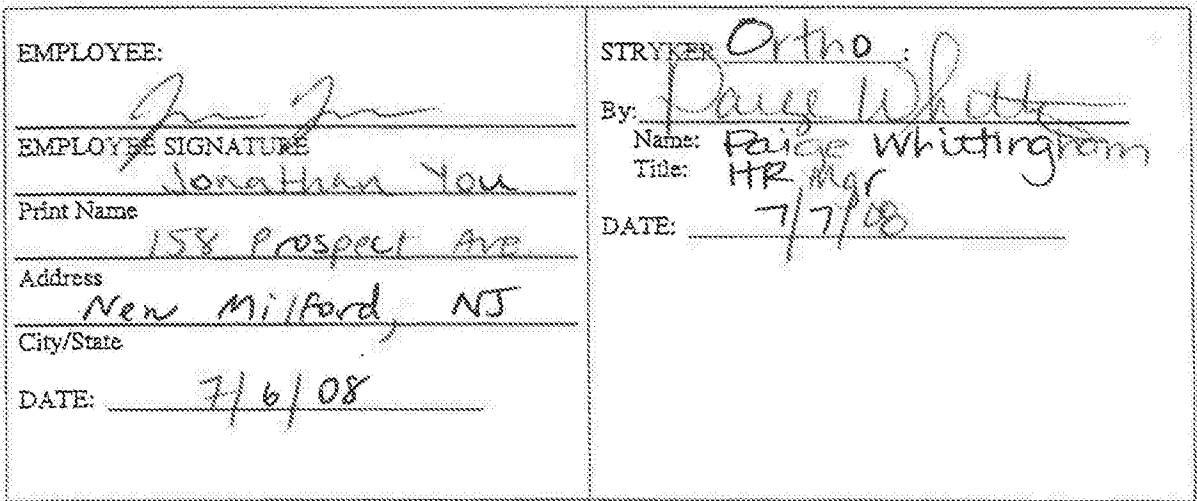 EMPLOYEE:
EMPLOYEE SIGNATURE
Jonathan You
Print Name
158 Prospect Ave
Address
New Milford, NJ
City/State
DATE: 7/6/08
STRYKER Ortho :
By: Paige Whitt
Name: Paige Whittingham
Title: HR Mgr
DATE: 7/7/08